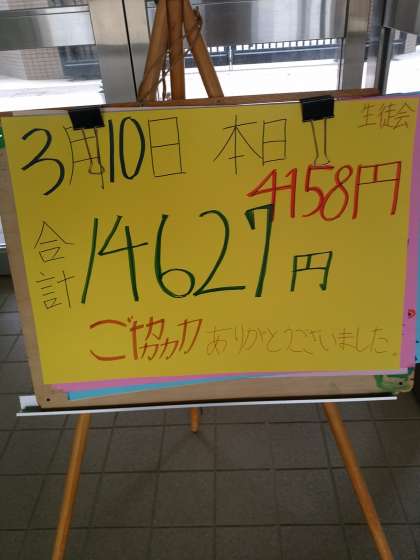 生徒会
3月10日 本日
4158円
合計 14627円
ご協力ありがとうございました。